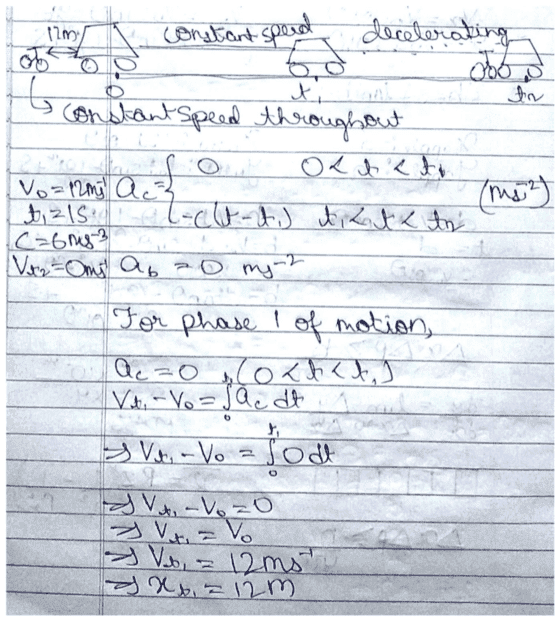 12m constant speed decelerating
0 t₁ t₂
↳ constant speed throughout
V₀ = 12ms⁻¹ a_c = { 0 0 < t < t₁ (ms⁻²)
t₁ = 1s -c(t-t₁) t₁ < t < t₂
C = 6ms⁻³
V_t₂ = 0ms⁻¹ a_b = 0 ms⁻²
For phase 1 of motion,
a_c = 0 (0 < t < t₁)
V_t₁ - V₀ = ∫₀^t₁ a_c dt
⇒ V_t₁ - V₀ = ∫₀^t₁ 0 dt
⇒ V_t₁ - V₀ = 0
⇒ V_t₁ = V₀
⇒ V_t₁ = 12ms⁻¹
⇒ x_t₁ = 12m